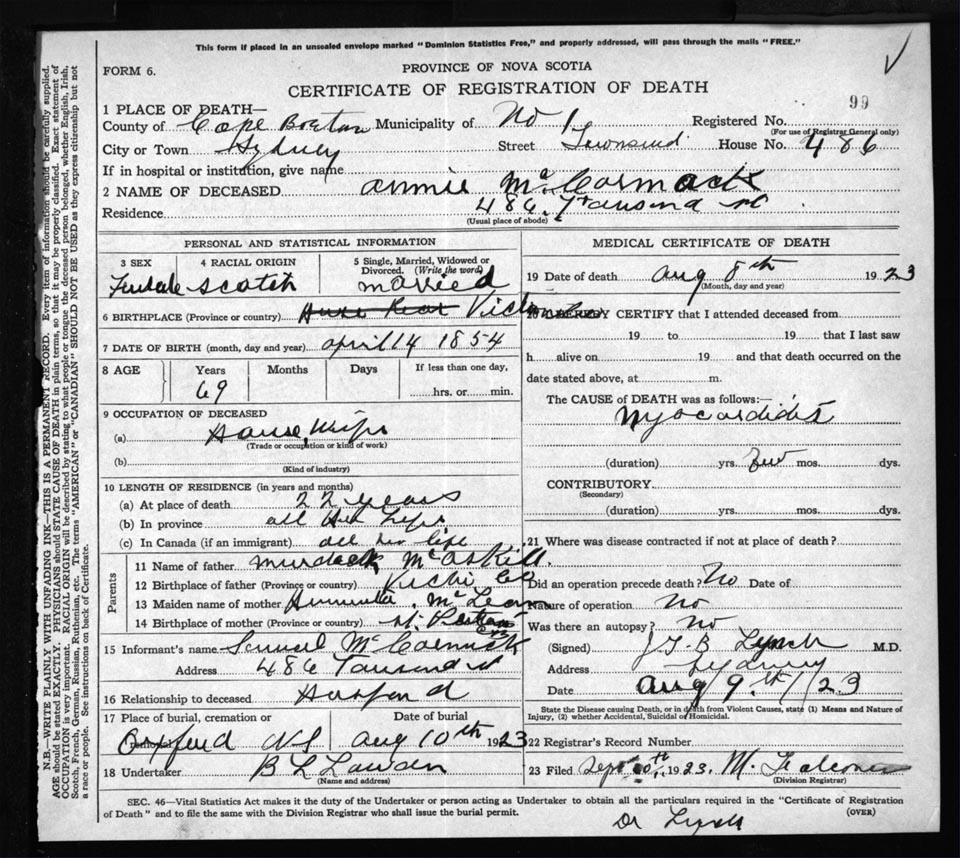 This form if placed in an unsealed envelope marked "Dominion Statistics Free," and properly addressed, will pass through the mails "FREE."
FORM 6.
PROVINCE OF NOVA SCOTIA
99
CERTIFICATE OF REGISTRATION OF DEATH
1 PLACE OF DEATH—
County of Cape Breton Municipality of No 1 Registered No.
(For use of Registrar General only)
City or Town Sydney Street Townsend House No. 486
If in hospital or institution, give name
2 NAME OF DECEASED Annie McCormack
Residence 486 Tausend st
(Usual place of abode)
PERSONAL AND STATISTICAL INFORMATION
3 SEX 4 RACIAL ORIGIN 5 Single, Married, Widowed or Divorced. (Write the word)
Female Scotch married
6 BIRTHPLACE (Province or country)
7 DATE OF BIRTH (month, day and year) april 14 1854
8 AGE Years Months Days If less than one day,
69 hrs. or min.
9 OCCUPATION OF DECEASED
(a) House Wife
(Trade or occupation or kind of work)
(b)
(Kind of industry)
10 LENGTH OF RESIDENCE (in years and months)
(a) At place of death 22 years
(b) In province all Her Life
(c) In Canada (if an immigrant) all her life
Parents
11 Name of father Murdock McAskill
12 Birthplace of father (Province or country)
13 Maiden name of mother McLean
14 Birthplace of mother (Province or country)
15 Informant's name Samuel McCormick
Address 486 Tausend st
16 Relationship to deceased Husband
17 Place of burial, cremation or removal Date of burial
Orxferd NS Aug 10th 1923
18 Undertaker B L
(Name and address)
MEDICAL CERTIFICATE OF DEATH
19 Date of death Aug 8th 1923
(Month, day and year)
20 I HEREBY CERTIFY that I attended deceased from
19 to 19 that I last saw
h alive on 19 and that death occurred on the
date stated above, at m.
The CAUSE of DEATH was as follows:—
Myocarditis
(duration) yrs. few mos. dys.
CONTRIBUTORY
(Secondary)
(duration) yrs. mos. dys.
21 Where was disease contracted if not at place of death?
Did an operation precede death? No Date of
Nature of operation no
Was there an autopsy? no
(Signed) J G B Lynch M.D.
Address Sydney
Date Aug 9th/23
State the Disease causing Death, or in death from Violent Causes, state (1) Means and Nature of Injury, (2) whether Accidental, Suicidal or Homicidal.
22 Registrar's Record Number
23 Filed Sept 10th 1923. M.
(Division Registrar)
SEC. 46—Vital Statistics Act makes it the duty of the Undertaker or person acting as Undertaker to obtain all the particulars required in the "Certificate of Registration of Death" and to file the same with the Division Registrar who shall issue the burial permit.
(OVER)
Dr Lynch
N.B.—WRITE PLAINLY WITH UNFADING INK—THIS IS A PERMANENT RECORD. Every item of information should be carefully supplied.
AGE should be stated EXACTLY. PHYSICIANS should STATE CAUSE OF DEATH in plain terms, so that it may be properly classified. Exact statement of
OCCUPATION is very important. RACIAL ORIGIN will be described by stating to what people or tongue the deceased person belonged, whether English, Irish,
Scotch, French, German, Russian, Ruthenian, etc. The terms "AMERICAN" or "CANADIAN" SHOULD NOT BE USED as they express citizenship but not
a race or people. See instructions on back of Certificate.